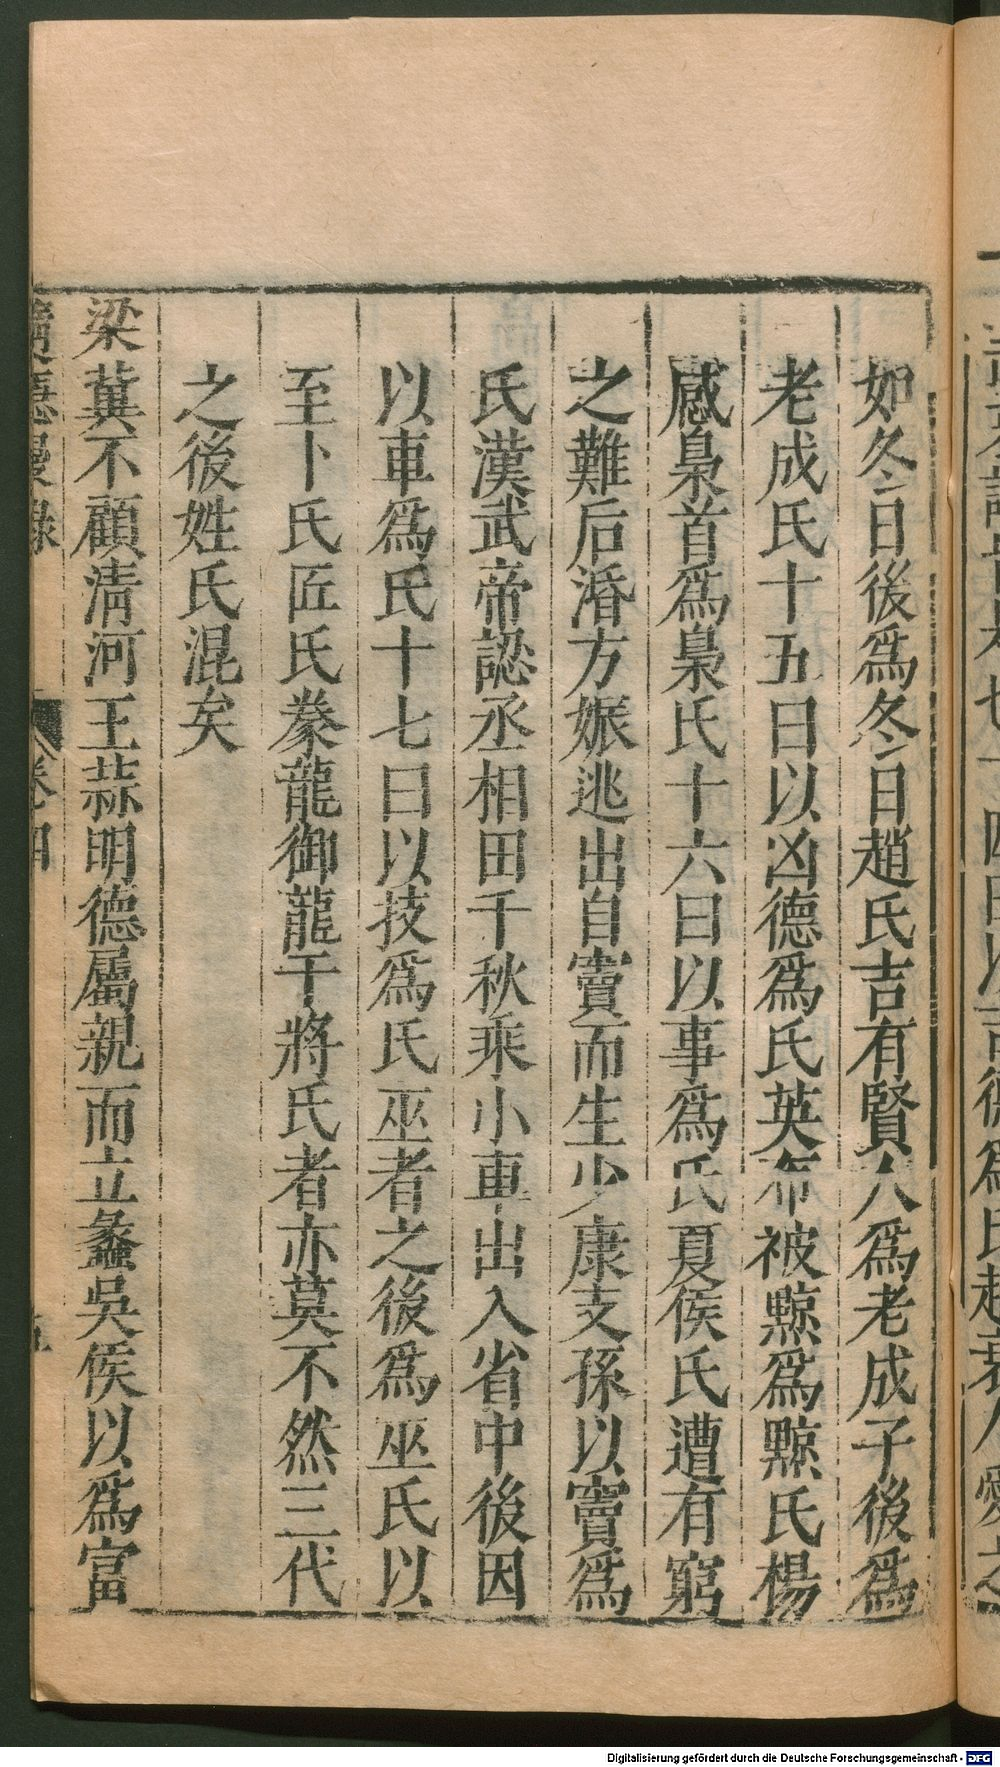 如冬日後爲冬日趙氏吉有賢人爲老成子後爲
老成氏十五曰以凶德爲氏英布被黥爲黥氏楊
感梟首爲梟氏十六曰以事爲氏夏侯氏遭有窮
之難后湣方娠逃出自竇而生少康支孫以竇爲
氏漢武帝認丞相田千秋乘小車出入省中後因
以車爲氏十七曰以技爲氏巫者之後爲巫氏以
至卜氏匠氏豢龍御龍干將氏者亦莫不然三代
之後姓氏混矣
梁冀不顧淸河王蒜明德屬親而立蠡吳侯以爲富
卷四
五
Digitalisierung gefördert durch die Deutsche Forschungsgemeinschaft - DFG